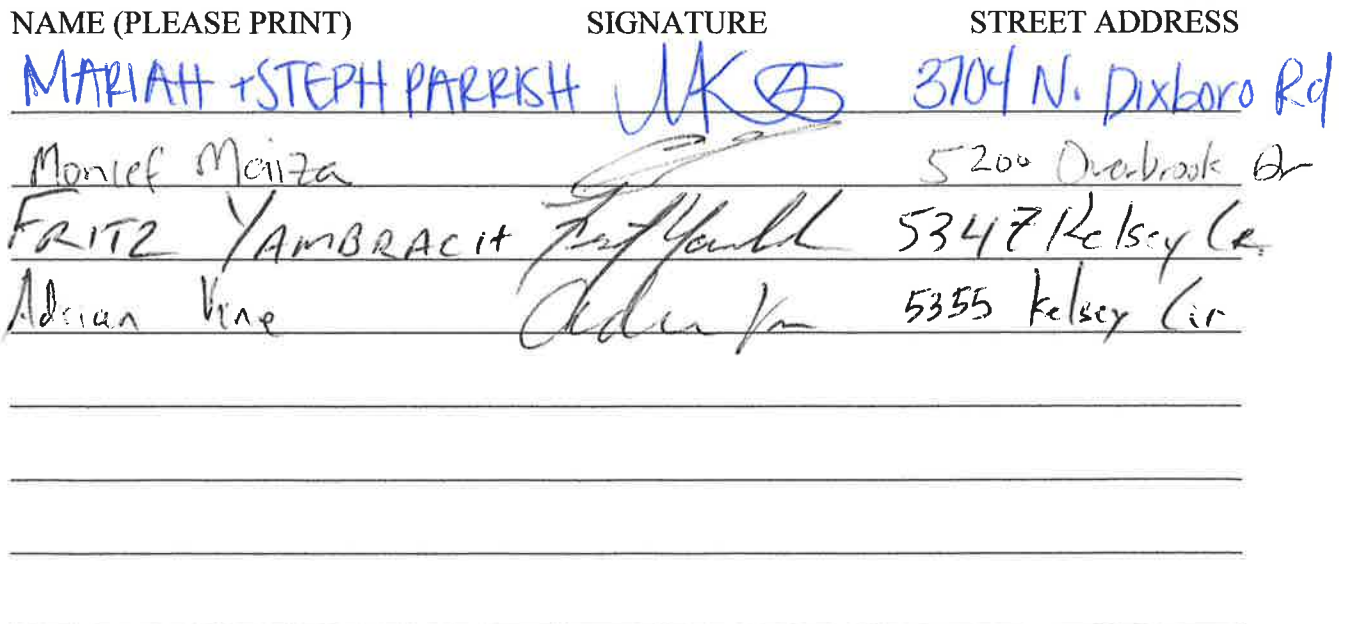 NAME (PLEASE PRINT) SIGNATURE STREET ADDRESS
MARIAH + STEPH PARRISH 3704 N. Dixboro Rd
Moncef Maiza 5200 Overbrook Dr
FRITZ YAMBRACH 5347 Kelsey Cr.
Adrian Vine 5355 Kelsey Cir